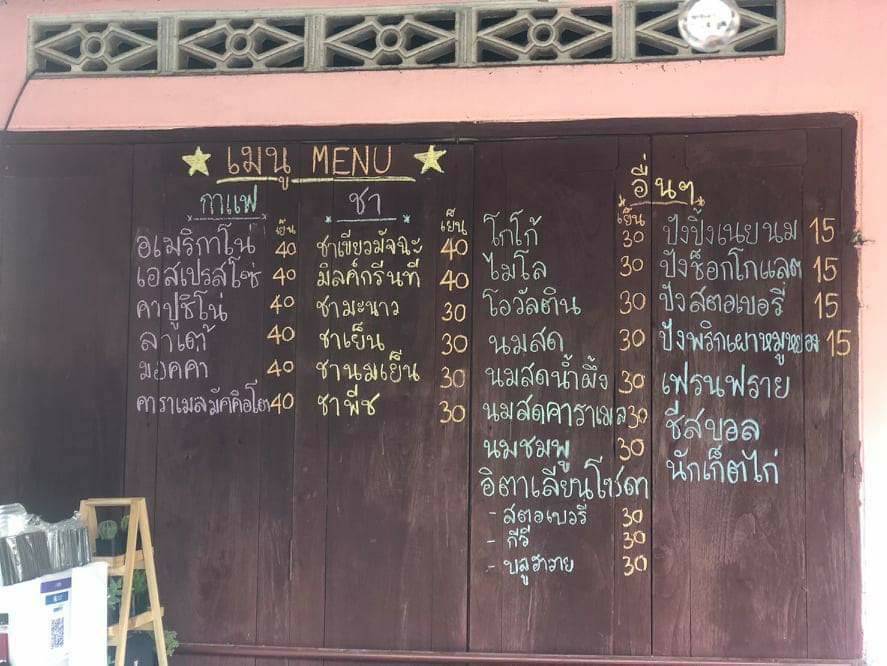 เมนู MENU
กาแฟ
เย็น
อเมริกาโน่ 40
เอสเปรสโซ่ 40
คาปูชิโน่ 40
ลาเต้ 40
มอคค่า 40
คาราเมลมัคคิอโต 40
ชา
เย็น
ชาเขียวมัจฉะ 40
มิลค์กรีนที 40
ชามะนาว 30
ชาเย็น 30
ชานมเย็น 30
ชาพีช 30
อื่นๆ
เย็น
โกโก้ 30
ไมโล 30
โอวัลติน 30
นมสด 30
นมสดน้ำผึ้ง 30
นมสดคาราเมล 30
นมชมพู 30
อิตาเลียนโซดา
- สตอเบอรี่ 30
- กีวี่ 30
- บลูฮาวาย 30
ปังปิ้งเนยนม 15
ปังช็อกโกแลต 15
ปังสตอเบอรี่ 15
ปังพริกเผาหมูหยอง 15
เฟรนฟราย
ชีสบอล
นักเก็ตไก่